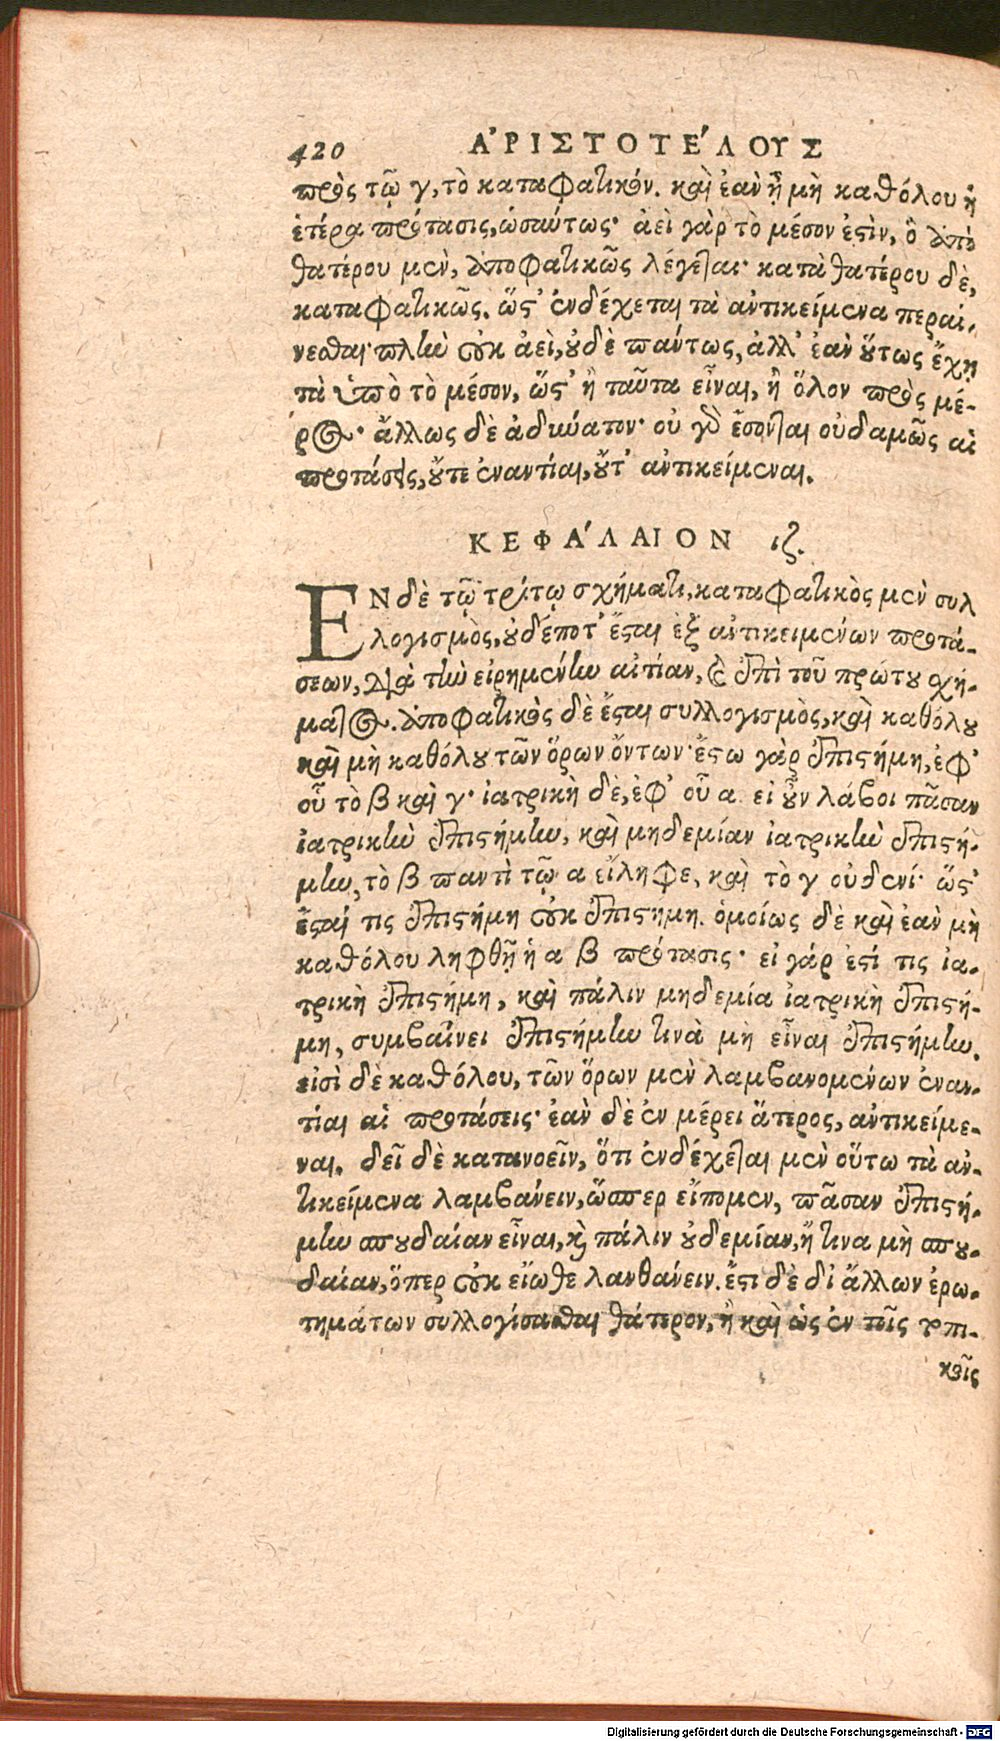 420 ΑΡΙΣΤΟΤΕ´ΛΟΥΣ
πρὸς τῷ γ, τὸ καταφατικόν. καὶ ἐὰν ᾖ μὴ καθόλου ἡ
ἑτέρα πρότασις, ὡσαύτως· ἀεὶ γὰρ τὸ μέσον ἐστὶν, ὃ ἀπὸ
θατέρου μὲν, ἀποφατικῶς λέγεται· κατὰ θατέρου δὲ,
καταφατικῶς. ὥστ' ἐνδέχεται τὰ αντικείμενα περαί-
νεσθαι· πλὴν οὐκ ἀεὶ, οὐδὲ πάντως, ἀλλ' ἐὰν οὕτως ἔχῃ
τὰ ὑπὸ τὸ μέσον, ὥστ' ἢ ταῦτα εἶναι, ἢ ὅλον πρὸς μέ-
ρος· ἄλλως δὲ ἀδύνατον· οὐ γὰρ ἔσονται οὐδαμῶς αἱ
προτάσεις, οὔτε ἐναντίαι, οὔτ' αντικείμεναι.
ΚΕΦΑ´ΛΑΙΟΝ ιζ.
ΕΝ δὲ τῷ τρίτῳ σχήματι, καταφατικὸς μὲν συλ
λογισμὸς, οὐδέποτ' ἔσται ἐξ αντικειμένων προτά-
σεων, διὰ τὴν εἰρημένην αἰτίαν, καὶ ἐπὶ τοῦ πρώτου σχή-
ματος. ἀποφατικὸς δὲ ἔσται συλλογισμὸς, καὶ καθόλου
καὶ μὴ καθόλου τῶν ὅρων ὄντων· ἔστω γὰρ ἐπιστήμη, ἐφ'
οὗ τὸ β καὶ γ· ἰατρικὴ δὲ, ἐφ' οὗ α. εἰ οὖν λάβοι πᾶσαν
ἰατρικὴν ἐπιστήμην, καὶ μηδεμίαν ἰατρικὴν ἐπιστή-
μην, τὸ β παντὶ τῷ α εἴληφε, καὶ τὸ γ οὐδενί· ὥστ'
ἔσται τις ἐπιστήμη οὐκ ἐπιστημη. ὁμοίως δὲ καὶ ἐὰν μὴ
καθόλου ληφθῇ ἡ α β πρότασις· εἰ γάρ ἐστί τις ἰα-
τρικὴ ἐπιστήμη, καὶ πάλιν μηδεμία ἰατρικὴ ἐπιστή-
μη, συμβαίνει ἐπιστήμην τινὰ μὴ εἶναι ἐπιστήμην.
εἰσὶ δὲ καθόλου, τῶν ὅρων μὲν λαμβανομένων ἐναν-
τίαι αἱ προτάσεις· ἐὰν δὲ ἐν μέρει ἅτερος, αντικείμε-
ναι. δεῖ δὲ κατανοεῖν, ὅτι ἐνδέχεται μὲν οὕτω τὰ αν-
τικείμενα λαμβάνειν, ὥσπερ εἴπομεν, πᾶσαν ἐπιστή-
μην σπουδαίαν εἶναι, καὶ πάλιν οὐδεμίαν, ἤ τινα μὴ σπου-
δαίαν, ὅπερ οὐκ εἴωθε λανθάνειν. ἔστι δὲ δι' ἄλλων ἐρω-
τημάτων συλλογίσασθαι θάτερον, ἢ καὶ ὡς ἐν τοῖς τοπι-
κοῖς
Digitalisierung gefördert durch die Deutsche Forschungsgemeinschaft - DFG